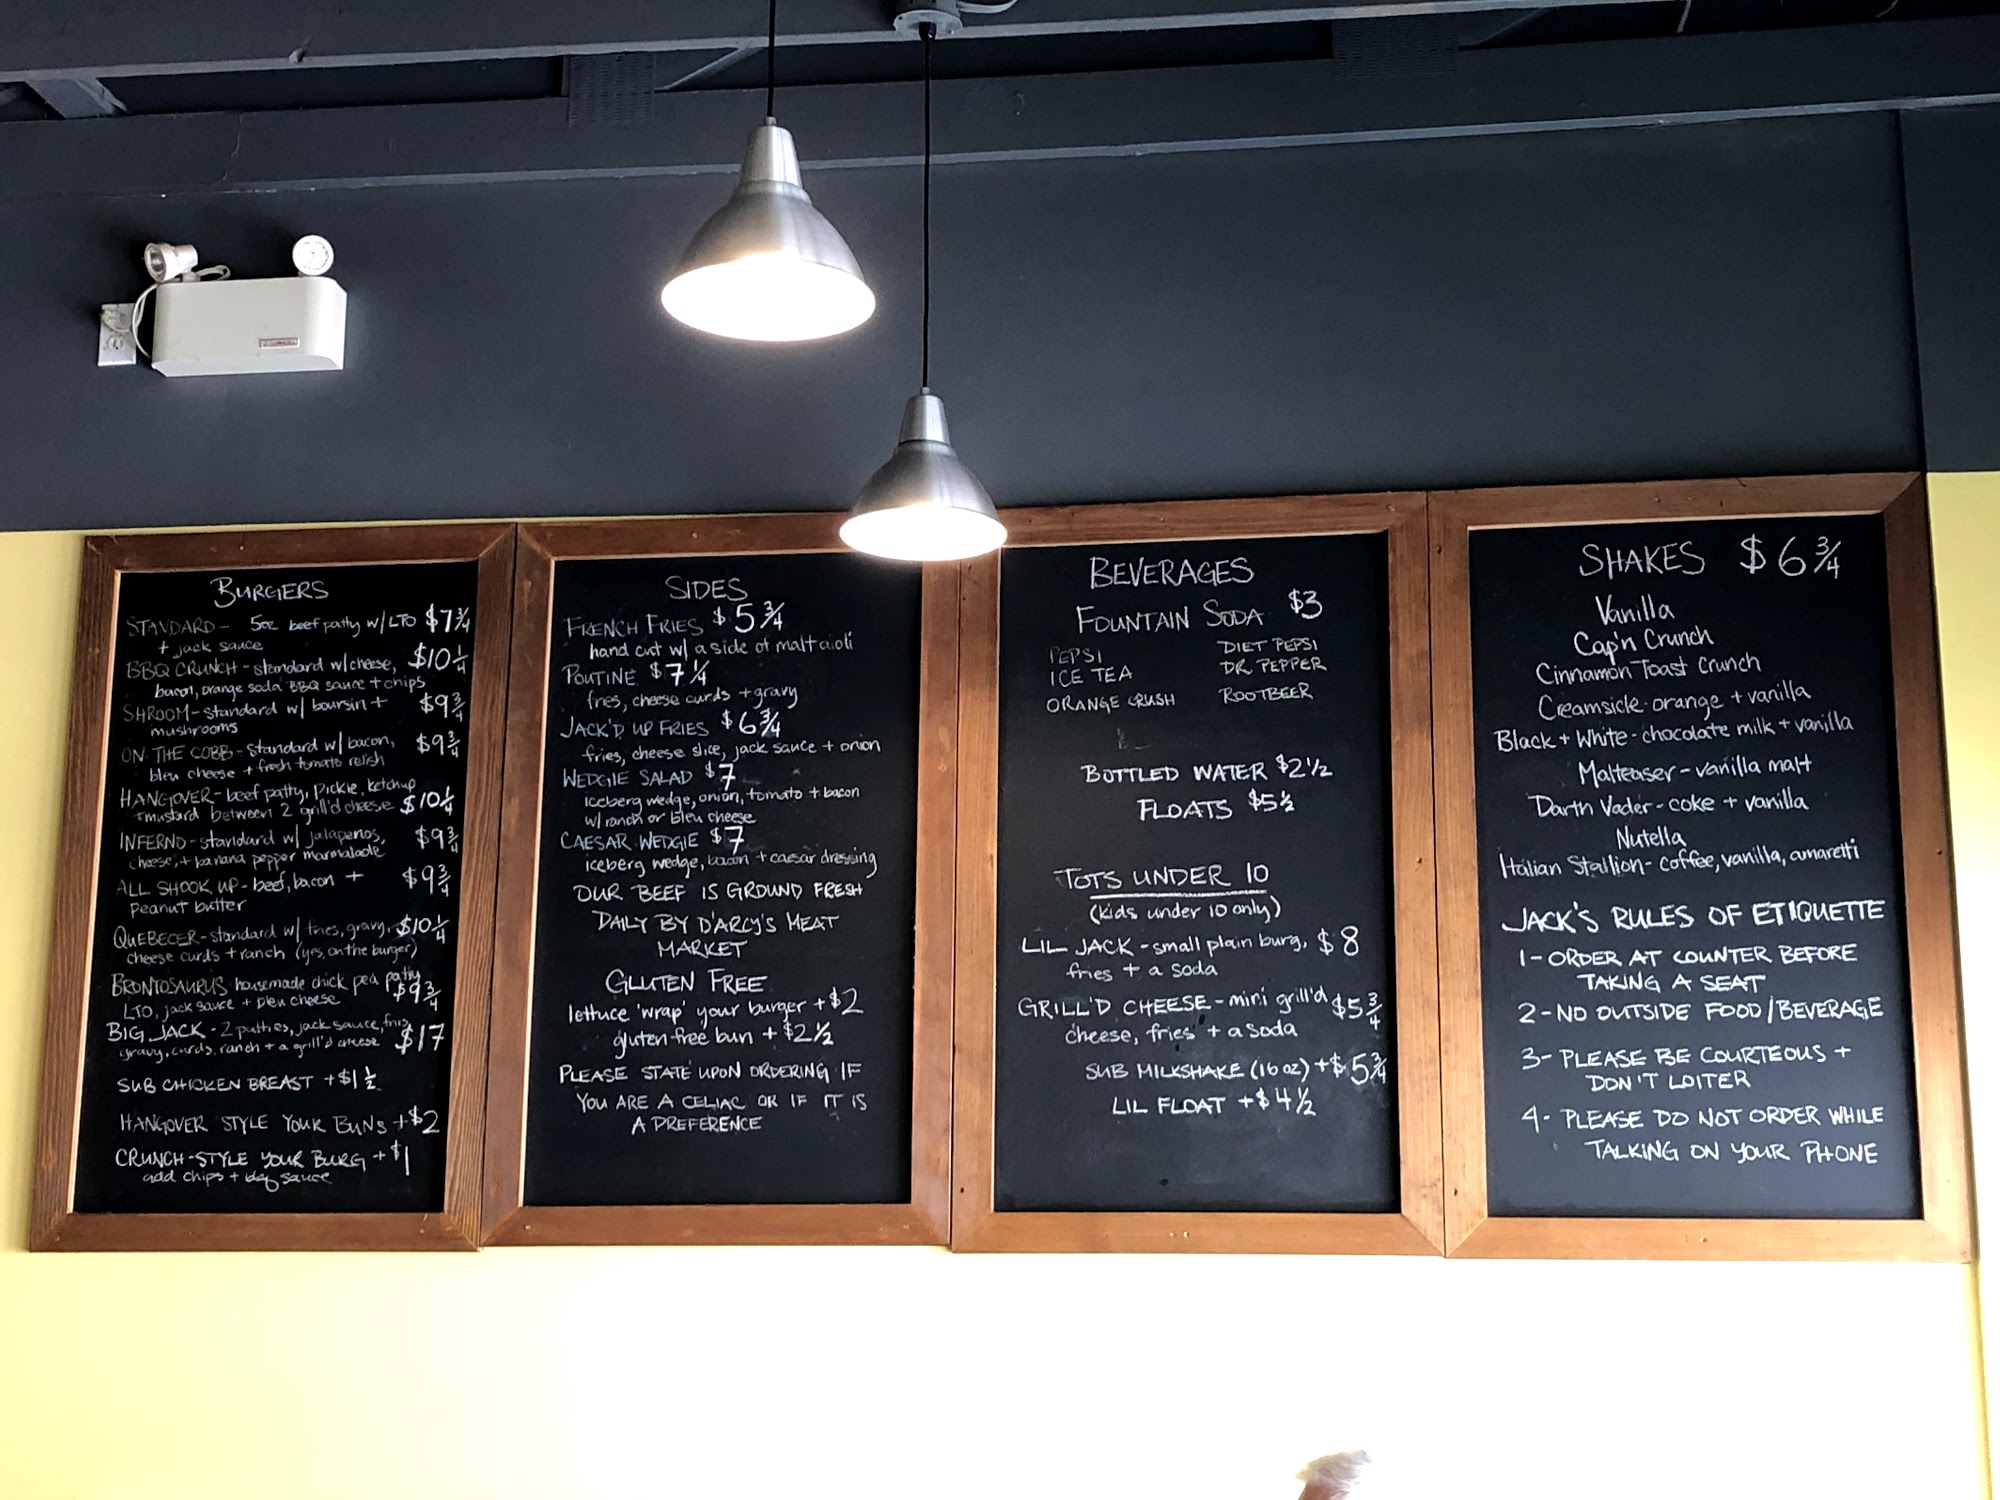 BURGERS
STANDARD - 5oz beef patty w/ LTO $7 3/4
+ jack sauce
BBQ CRUNCH - standard w/ cheese, $10 1/4
bacon, orange soda BBQ sauce + chips
SHROOM - standard w/ boursin + $9 3/4
mushrooms
ON THE COBB - standard w/ bacon, $9 3/4
bleu cheese + fresh tomato relish
HANGOVER - beef patty, pickle, ketchup
+ mustard between 2 grill'd cheese $10 1/4
INFERNO - standard w/ jalapenos, $9 3/4
cheese, + banana pepper marmalade
ALL SHOOK UP - beef, bacon + $9 3/4
peanut butter
QUEBECER - standard w/ fries, gravy, $10 1/4
cheese curds + ranch (yes, on the burger)
BRONTOSAURUS - housemade chick pea patty
LTO, jack sauce + bleu cheese $9 3/4
BIG JACK - 2 patties, jack sauce, fries
gravy, curds, ranch + a grill'd cheese $17
SUB CHICKEN BREAST + $1 1/2
HANGOVER STYLE YOUR BUNS + $2
CRUNCH-STYLE YOUR BURG + $1
add chips + bbq sauce
SIDES
FRENCH FRIES $5 3/4
hand cut w/ a side of malt aioli
POUTINE $7 1/4
fries, cheese curds + gravy
JACK'D UP FRIES $6 3/4
fries, cheese slice, jack sauce + onion
WEDGIE SALAD $7
iceberg wedge, onion, tomato + bacon
w/ ranch or bleu cheese
CAESAR WEDGIE $7
iceberg wedge, bacon + caesar dressing
OUR BEEF IS GROUND FRESH
DAILY BY D'ARCY'S MEAT
MARKET
GLUTEN FREE
lettuce 'wrap' your burger + $2
gluten free bun + $2 1/2
PLEASE STATE UPON ORDERING IF
YOU ARE A CELIAC OR IF IT IS
A PREFERENCE
BEVERAGES
FOUNTAIN SODA $3
PEPSI DIET PEPSI
ICE TEA DR. PEPPER
ORANGE CRUSH ROOTBEER
BOTTLED WATER $2 1/2
FLOATS $5 1/2
TOTS UNDER 10
(kids under 10 only)
LIL JACK - small plain burg, $8
fries + a soda
GRILL'D CHEESE - mini grill'd $5 3/4
cheese, fries + a soda
SUB MILKSHAKE (16 oz) + $5 3/4
LIL FLOAT + $4 1/2
SHAKES $6 3/4
Vanilla
Cap'n Crunch
Cinnamon Toast Crunch
Creamsicle - orange + vanilla
Black + White - chocolate milk + vanilla
Malteaser - vanilla malt
Darth Vader - coke + vanilla
Nutella
Italian Stallion - coffee, vanilla, amaretti
JACK'S RULES OF ETIQUETTE
1 - ORDER AT COUNTER BEFORE
TAKING A SEAT
2 - NO OUTSIDE FOOD/BEVERAGE
3 - PLEASE BE COURTEOUS +
DON'T LOITER
4 - PLEASE DO NOT ORDER WHILE
TALKING ON YOUR PHONE